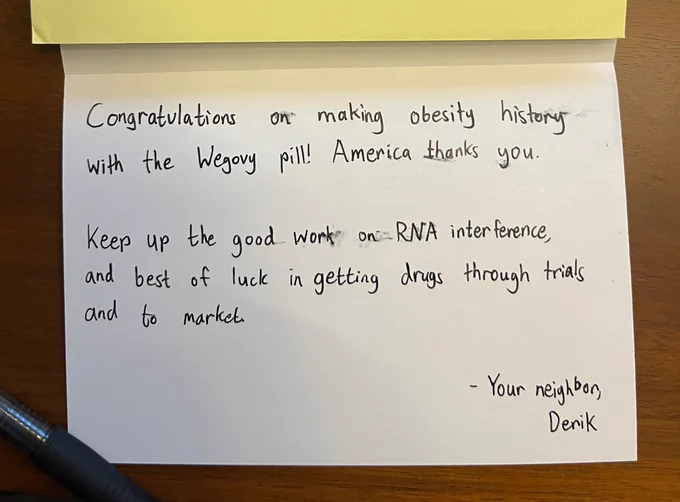 Congratulations on making obesity history
with the Wegovy pill! America thanks you.
Keep up the good work on RNA interference,
and best of luck in getting drugs through trials
and to market.
- Your neighbor,
Denik